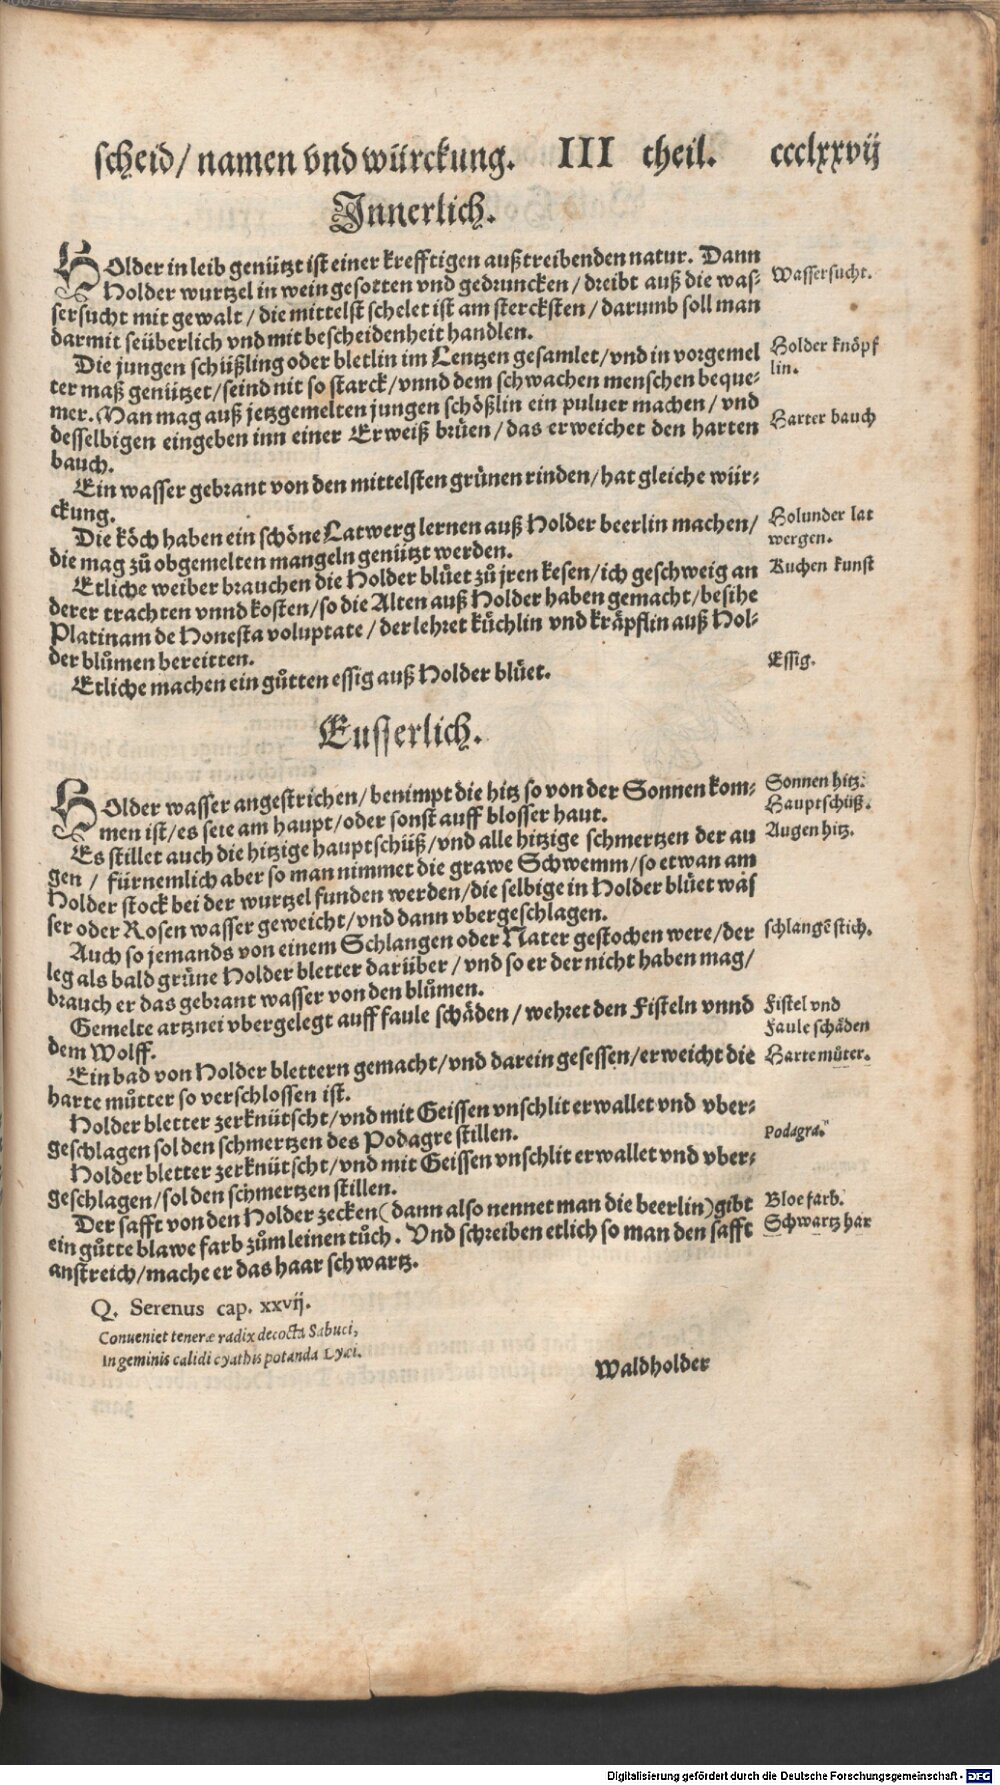 scheid/ namen vnd würckung. III theil. ccclxxvij
Innerlich.
HOlder in leib genützt ist einer krefftigen außtreibenden natur. Dann
Holder wurtzel in wein gesotten vnd gedruncken/ dreibt auß die was-
sersucht mit gewalt/ die mittelst schelet ist am stercksten/ darumb soll man
darmit seüberlich vnd mit bescheidenheit handlen.
Wassersucht.
Die jungen schüßling oder bletlin im Lentzen gesamlet/ vnd in vorgemel
ter maß genützet/ seind nit so starck/ vnnd dem schwachen menschen beque-
mer. Man mag auß jetzgemelten jungen schößlin ein puluer machen/ vnd
desselbigen eingeben inn einer Erweiß brüen/ das erweichet den harten
bauch.
Holder knöpf
lin.
Harter bauch
Ein wasser gebrant von den mittelsten grünen rinden/ hat gleiche wür-
ckung.
Die köch haben ein schöne Latwerg lernen auß Holder beerlin machen/
die mag zů obgemelten mangeln genützt werden.
Holunder lat
wergen.
Etliche weiber brauchen die Holder blüet zů jren kesen/ ich geschweig an
derer trachten vnnd kosten/ so die Alten auß Holder haben gemacht/ besihe
Platinam de Honesta voluptate/ der lehret küchlin vnd kräpflin auß Hol-
der blůmen bereitten.
Kuchen kunst
Etliche machen ein gůtten essig auß Holder blüet.
Essig.
Eusserlich.
HOlder wasser angestrichen/ benimpt die hitz so von der Sonnen kom-
men ist/ es seie am haupt/ oder sonst auff blosser haut.
Sonnen hitz.
Hauptschüß.
Es stillet auch die hitzige hauptschüß/ vnd alle hitzige schmertzen der au
gen/ fürnemlich aber so man nimmet die grawe Schwemm/ so etwan am
Holder stock bei der wurtzel funden werden/ die selbige in Holder blüet wäs
ser oder Rosen wasser geweicht/ vnd dann vbergeschlagen.
Augen hitz.
Auch so jemands von einem Schlangen oder Nater gestochen were/ der
leg als bald grüne Holder bletter darüber/ vnd so er der nicht haben mag/
brauch er das gebrant wasser von den blůmen.
schlangē stich.
Gemelte artznei vbergelegt auff faule schäden/ wehret den Fisteln vnnd
dem Wolff.
Fistel vnd
Faule schäden
Ein bad von Holder blettern gemacht/ vnd darein gesessen/ erweicht die
harte můtter so verschlossen ist.
Harte můter.
Holder bletter zerknütscht/ vnd mit Geissen vnschlit erwallet vnd vber-
geschlagen sol den schmertzen des Podagre stillen.
Podagra.
Holder bletter zerknütscht/ vnd mit Geissen vnschlit erwallet vnd vber-
geschlagen/ sol den schmertzen stillen.
Der safft von den Holder zecken (dann also nennet man die beerlin) gibt
ein gůtte blawe farb zům leinen tůch. Vnd schreiben etlich so man den safft
anstreich/ mache er das haar schwartz.
Bloe farb.
Schwartz har
Q. Serenus cap. xxvij.
Conueniet teneræ radix decocta Sabuci,
In geminis calidi cyathis potanda Lyæi.
Waldholder
Digitalisierung gefördert durch die Deutsche Forschungsgemeinschaft - DFG